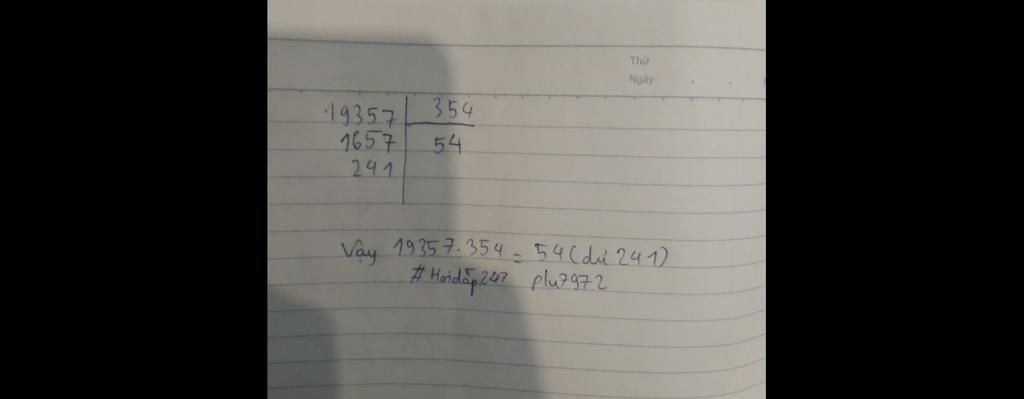 Thứ
Ngày
19357 354
1657 54
241
Vậy 19357:354 = 54 (dư 241)
#Hoidắp247 plu7972